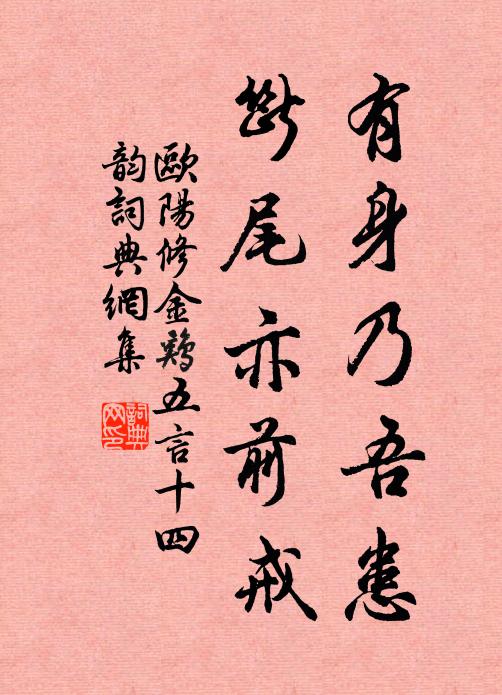 有身乃吾患
斷尾亦前戒
歐陽修金鷄五言十四
韵詞典網集
詞典
网印